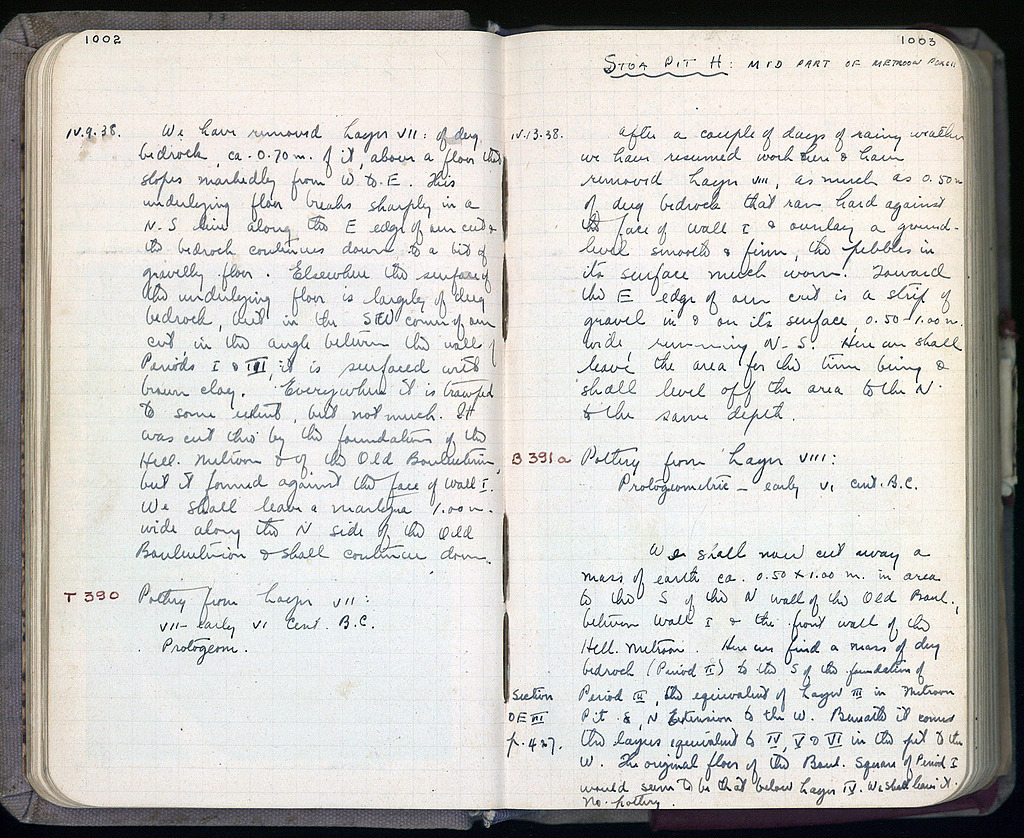 1002
IV.9.38. We have removed Layer VII: of dug
bedrock, ca. 0.70 m. of it, above a floor that
slopes markedly from W to E. This
underlying floor breaks sharply in a
N-S line along the E edge of our cut &
its bedrock continues down to a bit of
gravelly floor. Elsewhere the surface of
the underlying floor is largely of dug
bedrock, but in the SW corner of our
cut, in the angle between the walls of
Periods I & III it is surfaced with
brown clay. Everywhere it is tramped
to some extent, but not much. It
was cut thro by the foundations of the
Hell. Metroon & of the Old Bouleuterion,
but it formed against the face of wall I.
We shall leave a 1.00 m.
wide along the N side of the Old
Bouleuterion & shall continue down.
T 390 Pottery from Layer VII:
VII - early VI cent. B.C.
Protogeom.
1003
STOA PIT H: MID PART OF METROON PORCH
IV.13.38. After a couple of days of rainy weather
we have resumed work here & have
removed Layer VIII, as much as 0.50 m
of dug bedrock that ran hard against
the face of wall I & overlay a ground-
level smooth & firm, the pebbles in
its surface much worn. Toward
the E edge of our cut is a strip of
gravel in & on its surface, 0.50-1.00 m.
wide, running N-S. Here we shall
leave the area for the time being &
shall level off the area to the N
to the same depth.
B 391a Pottery from Layer VIII:
Protogeometric - early VI cent. B.C.
We shall now cut away a
mass of earth ca. 0.50 x 1.00 m. in area
to the S of the N wall of the Old Boul.,
between wall I & the front wall of the
Hell. Metroon. Here we find a mass of dug
bedrock (Period II) to the S of the foundation of
Section Period III, the equivalent of Layer III in Metroon
OE III Pit &, N Extension to the W. Beneath it comes
p. 427. the layers equivalent to IV, V & VI in the pit to the
W. The original floor of the Boul. Square of Period I
would seem to be that below Layer IV. We shall leave it.
No pottery.